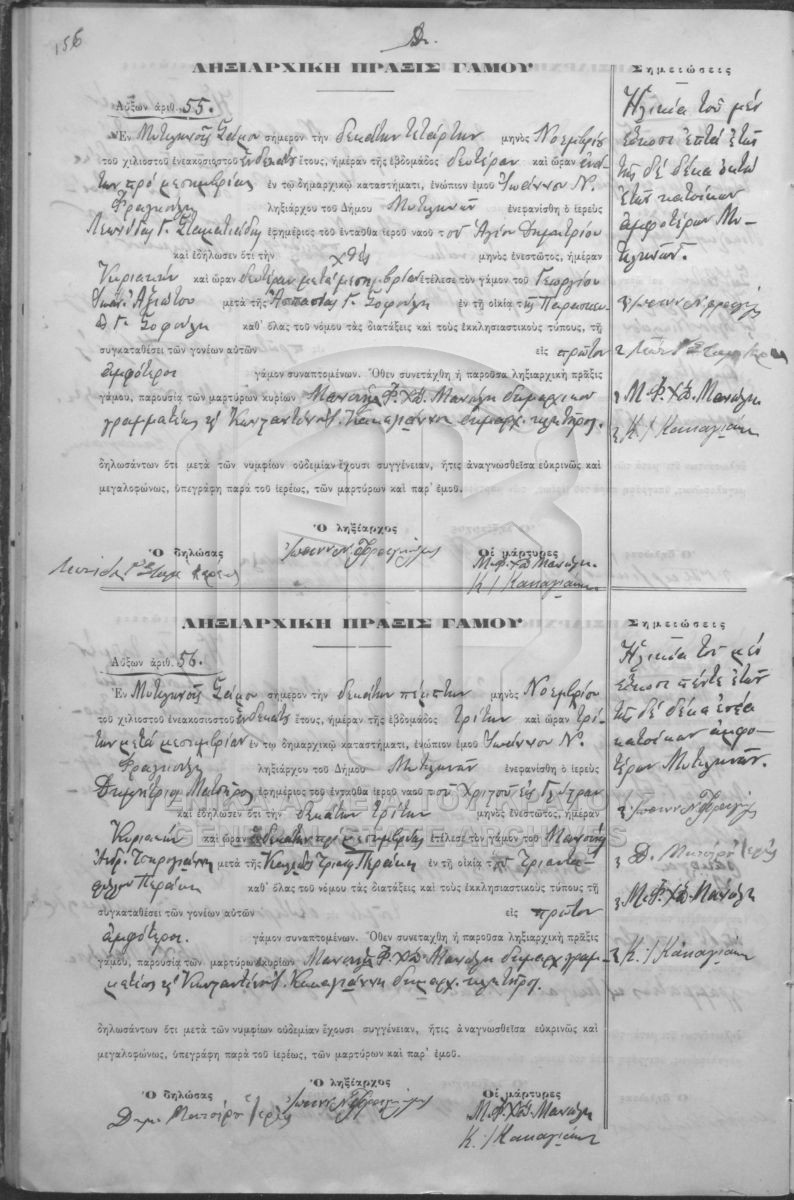 156
ΛΗΞΙΑΡΧΙΚΗ ΠΡΑΞΙΣ ΓΑΜΟΥ
Σημειώσεις
Αὔξων ἀριθ. 55.
Ἐν Μυτιληνοῖς Σάμου σήμερον τὴν δεκάτην τετάρτην μηνὸς Νοεμβρίου
τοῦ χιλιοστοῦ ἐνεακοσιοστοῦ ἑνδεκάτου ἔτους, ἡμέραν τῆς ἑβδομάδος δευτέραν καὶ ὥραν ἐνά-
την πρό μεσημβρίας ἐν τῷ δημαρχικῷ καταστήματι, ἐνώπιον ἐμοῦ Ἰωάννου Ν.
Φραγκούλη ληξιάρχου τοῦ Δήμου Μυτιληνῶν ἐνεφανίσθη ὁ ἱερεὺς
Λεωνίδας Γ. Σταματιάδης ἐφημέριος τοῦ ἐνταῦθα ἱεροῦ ναοῦ τοῦ Ἁγίου Δημητρίου
καὶ ἐδήλωσεν ὅτι τὴν χθές μηνὸς ἐνεστῶτος, ἡμέραν
Κυριακήν καὶ ὥραν δευτέραν μετά μεσημβρίαν ἐτέλεσε τὸν γάμον τοῦ Γεωργίου
μετὰ τῆς Ἀσπασίας Γ. Σοφούλη ἐν τῇ οἰκίᾳ τῆς Παρασκευ-
ῆς Γ. Σοφούλη καθ᾽ ὅλας τοῦ νόμου τὰς διατάξεις καὶ τοὺς ἐκκλησιαστικοὺς τύπους, τῇ
συγκαταθέσει τῶν γονέων αὐτῶν εἰς πρῶτον
ἀμφότεροι γάμον συναπτομένων. Ὅθεν συνετάχθη ἡ παροῦσα ληξιαρχικὴ πρᾶξις
γάμου, παρουσίᾳ τῶν μαρτύρων κυρίων Μανουὴλ Φ. Χʺ Μανώλη δημαρχικοῦ
γραμματέως κʹ Κωνσταντίνου Ι. Κακαγιάννη δημαρχ. κλητῆρος.
δηλωσάντων ὅτι μετὰ τῶν νυμφίων οὐδεμίαν ἔχουσι συγγένειαν, ἥτις ἀναγνωσθεῖσα εὐκρινῶς καὶ
μεγαλοφώνως, ὑπεγράφη παρὰ τοῦ ἱερέως, τῶν μαρτύρων καὶ παρ᾽ ἐμοῦ.
Ὁ ληξίαρχος
Ὁ δηλώσας
Οἱ μάρτυρες
Ἰωάνν. Ν. Φραγκούλης
Μ. Φ. Χʺ Μανώλη
Κ. Ι Κακαγιάννη
Ἡλικία τοῦ μέν
εἴκοσι ἑπτά ἐτῶν
τῆς δέ δέκα ὀκτώ
ἐτῶν κατοίκων
ἀμφοτέρων Μυ-
τιληνῶν.
Ἰωάνν. Ν. Φραγκούλης
Μ. Φ. Χʺ Μανώλη
Κ. Ι Κακαγιάννη
ΛΗΞΙΑΡΧΙΚΗ ΠΡΑΞΙΣ ΓΑΜΟΥ
Σημειώσεις
Αὔξων ἀριθ. 56.
Ἐν Μυτιληνοῖς Σάμου σήμερον τὴν δεκάτην πέμπτην μηνὸς Νοεμβρίου
τοῦ χιλιοστοῦ ἐνεακοσιοστοῦ ἑνδεκάτου ἔτους, ἡμέραν τῆς ἑβδομάδος τρίτην καὶ ὥραν τρί-
την μετά μεσημβρίαν ἐν τῷ δημαρχικῷ καταστήματι, ἐνώπιον ἐμοῦ Ἰωάννου Ν.
Φραγκούλη ληξιάρχου τοῦ Δήμου Μυτιληνῶν ἐνεφανίσθη ὁ ἱερεὺς
Δημήτριος ἐφημέριος τοῦ ἐνταῦθα ἱεροῦ ναοῦ τοῦ
καὶ ἐδήλωσεν ὅτι τὴν δεκάτην τρίτην μηνὸς ἐνεστῶτος, ἡμέραν
Κυριακήν καὶ ὥραν ἑνδεκάτην πρό μεσημβρίας ἐτέλεσε τὸν γάμον τοῦ Μανουὴλ
μετὰ τῆς Περάκη ἐν τῇ οἰκίᾳ τοῦ Τριαντα-
φύλλου Περάκη καθ᾽ ὅλας τοῦ νόμου τὰς διατάξεις καὶ τοὺς ἐκκλησιαστικοὺς τύπους τῇ
συγκαταθέσει τῶν γονέων αὐτῶν εἰς πρῶτον
ἀμφότεροι. γάμον συναπτομένων. Ὅθεν συνετάχθη ἡ παροῦσα ληξιαρχικὴ πρᾶξις
γάμου, παρουσίᾳ τῶν μαρτύρων κυρίων Μανουὴλ Φ. Χʺ Μανώλη δημαρχ. γραμ-
ματέως κʹ Κωνσταντίνου Ι. Κακαγιάννη δημαρχ. κλητῆρος.
δηλωσάντων ὅτι μετὰ τῶν νυμφίων οὐδεμίαν ἔχουσι συγγένειαν, ἥτις ἀναγνωσθεῖσα εὐκρινῶς καὶ
μεγαλοφώνως, ὑπεγράφη παρὰ τοῦ ἱερέως, τῶν μαρτύρων καὶ παρ᾽ ἐμοῦ.
Ὁ ληξίαρχος
Ὁ δηλώσας
Οἱ μάρτυρες
Ἰωάνν. Ν. Φραγκούλης
Μ. Φ. Χʺ Μανώλη
Κ. Ι Κακαγιάννη
Ἡλικία τοῦ μέν
εἴκοσι πέντε ἐτῶν
τῆς δέ δέκα ἐννέα
κατοίκων ἀμφο-
τέρων Μυτιληνῶν.
Ἰωάνν. Ν. Φραγκούλης
Μ. Φ. Χʺ Μανώλη
Κ. Ι Κακαγιάννη